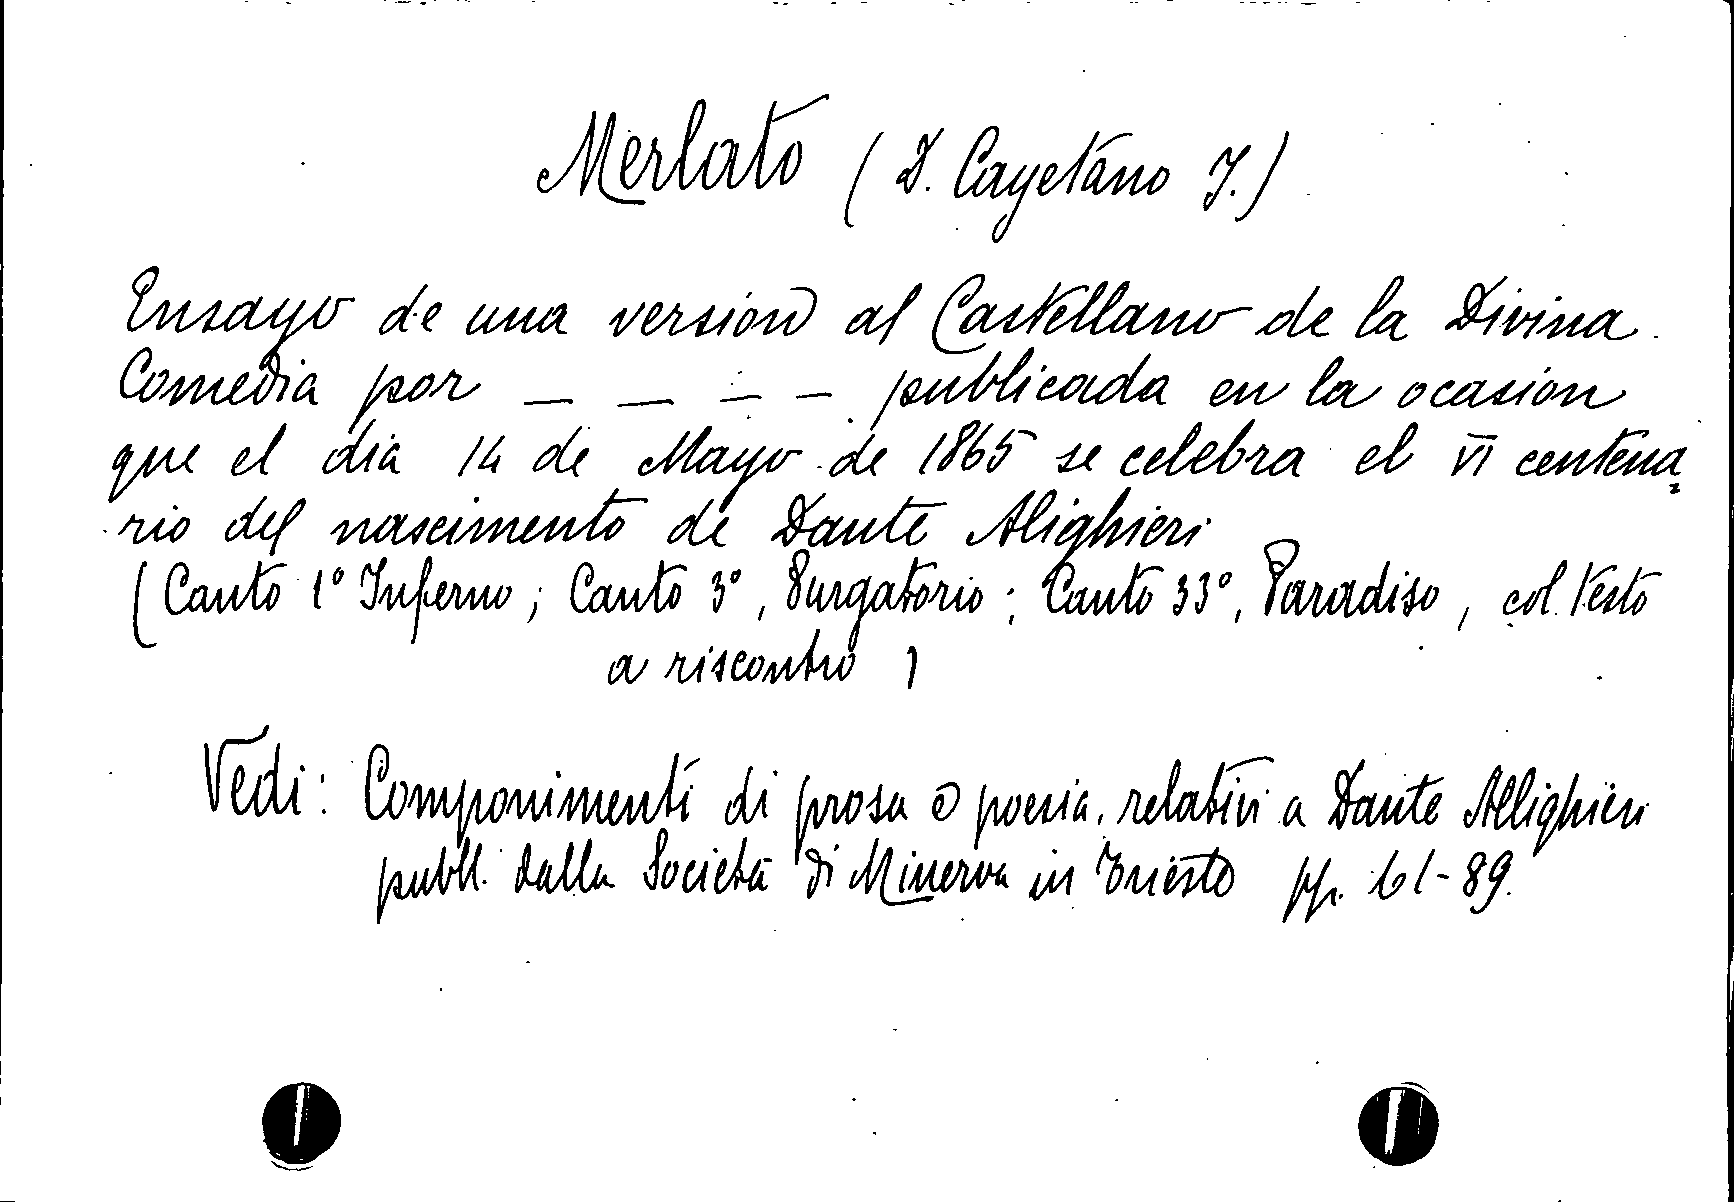 Merlato (D. Cayetano J.)
Ensayo de una version al Castellano de la Divina
Comedia por _ _ _ _ publicada en la ocasion
que el dia 14 de Mayo de 1865 se celebra el VI centena
rio del nascimento de Dante Alighieri
(Canto 1° Inferno; Canto 3°, Purgatorio; Canto 33°, Paradiso, col testo
a riscontro)
Vedi: Componimenti di prosa e poesia, relativi a Dante Allighieri
pubbl. dalla Società di Minerva in Trieste pp. 61-89.